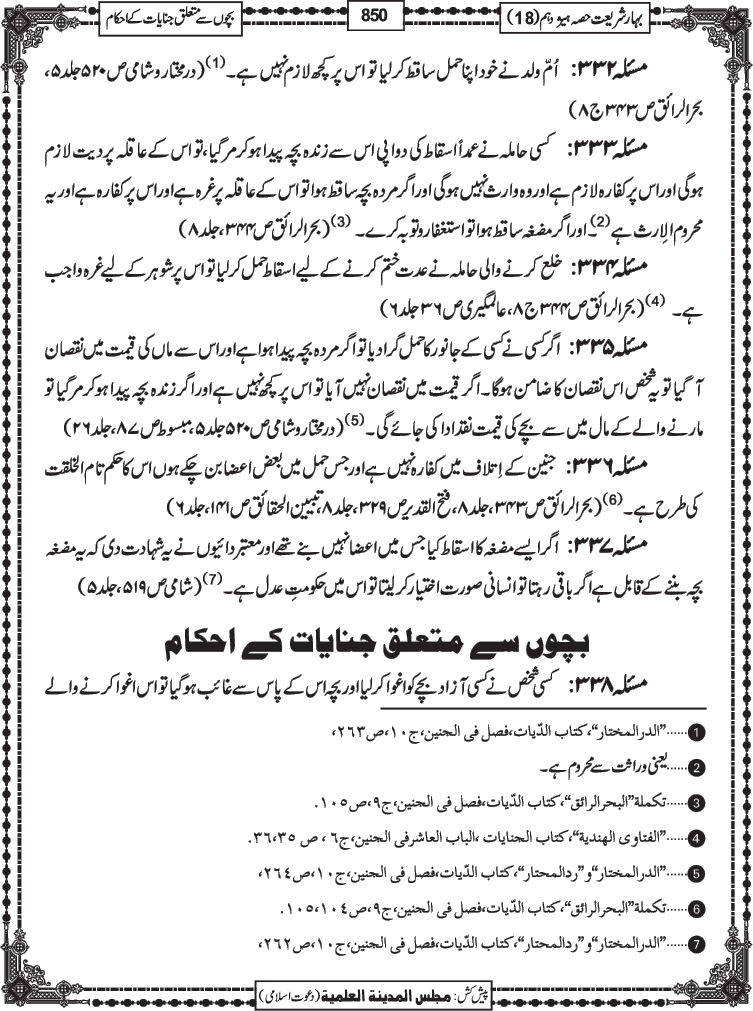 بہار شریعت حصہ ہیژدہم (18)
850
بچوں سے متعلق جنایات کے احکام
مسئلہ ۳۳۲: اُمّ ولد نے خود اپنا حمل ساقط کر لیا تو اس پر کچھ لازم نہیں ہے۔(1) (درمختار و شامی ص ۵۲۰ جلد ۵،
بحرالرائق ص ۳۴۳ ج ۸)
مسئلہ ۳۳۳: کسی حاملہ نے عمداً اسقاط کی دوا پی اس سے زندہ بچہ پیدا ہو کر مر گیا، تو اس کے عاقلہ پر دیت لازم
ہوگی اور اس پر کفارہ لازم ہے اور وہ وارث نہیں ہوگی اور اگر مردہ بچہ ساقط ہوا تو اس کے عاقلہ پر غرہ ہے اور اس پر کفارہ ہے اور یہ
محروم الإرث ہے (2)۔ اور اگر مضغہ ساقط ہوا تو استغفار و توبہ کرے۔ (3) (بحرالرائق ص ۳۴۴، جلد ۸)
مسئلہ ۳۳۴: خلع کرنے والی حاملہ نے عدت ختم کرنے کے لیے اسقاطِ حمل کر لیا تو اس پر شوہر کے لیے غرہ واجب
ہے۔ (4) (بحرالرائق ص ۳۴۴ ج ۸، عالمگیری ص ۳۶ جلد ۶)
مسئلہ ۳۳۵: اگر کسی نے کسی کے جانور کا حمل گرا دیا تو اگر مردہ بچہ پیدا ہوا ہے اور اس سے ماں کی قیمت میں نقصان
آ گیا تو یہ شخص اس نقصان کا ضامن ہوگا۔ اگر قیمت میں نقصان نہیں آیا تو اس پر کچھ نہیں ہے اور اگر زندہ بچہ پیدا ہو کر مر گیا تو
مارنے والے کے مال میں سے بچے کی قیمت نقد ادا کی جائے گی۔ (5) (درمختار و شامی ص ۵۲۰ جلد ۵، مبسوط ص ۸۷، جلد ۲۶)
مسئلہ ۳۳۶: جنین کے اِتلاف میں کفارہ نہیں ہے اور جس حمل میں بعض اعضا بن چکے ہوں اس کا حکم تام الخلقت
کی طرح ہے۔ (6) (بحرالرائق ص ۳۴۳، جلد ۸، فتح القدیر ص ۳۲۹، جلد ۸، تبیین الحقائق ص ۱۴۱، جلد ۶)
مسئلہ ۳۳۷: اگر ایسے مضغہ کا اسقاط کیا جس میں اعضا نہیں بنے تھے اور معتبر دائیوں نے یہ شہادت دی کہ یہ مضغہ
بچہ بننے کے قابل ہے اگر باقی رہتا تو انسانی صورت اختیار کر لیتا تو اس میں حکومتِ عدل ہے۔ (7) (شامی ص ۵۱۹، جلد ۵)
بچوں سے متعلق جنایات کے احکام
مسئلہ ۳۳۸: کسی شخص نے کسی آزاد بچے کو اغوا کر لیا اور بچہ اس کے پاس سے غائب ہو گیا تو اس اغوا کرنے والے
1 ......"الدرالمختار"، کتاب الدّیات، فصل فی الجنین، ج ۱۰، ص ۲٦۳،
2 ......یعنی وراثت سے محروم ہے۔
3 ......تکملة "البحرالرائق"، کتاب الدّیات، فصل فی الجنین، ج ۹، ص ۱۰۵.
4 ......"الفتاوی الهندیة"، کتاب الجنایات، الباب العاشر فی الجنین، ج ٦، ص ۳۵، ۳٦.
5 ......"الدرالمختار" و "ردالمحتار"، کتاب الدّیات، فصل فی الجنین، ج ۱۰، ص ۲٦٤،
6 ......تکملة "البحرالرائق"، کتاب الدّیات، فصل فی الجنین، ج ۹، ص ۱۰٤، ۱۰۵.
7 ......"الدرالمختار" و "ردالمحتار"، کتاب الدّیات، فصل فی الجنین، ج ۱۰، ص ۲٦۲،
پیش کش: مجلس المدینة العلمیة (دعوت اسلامی)